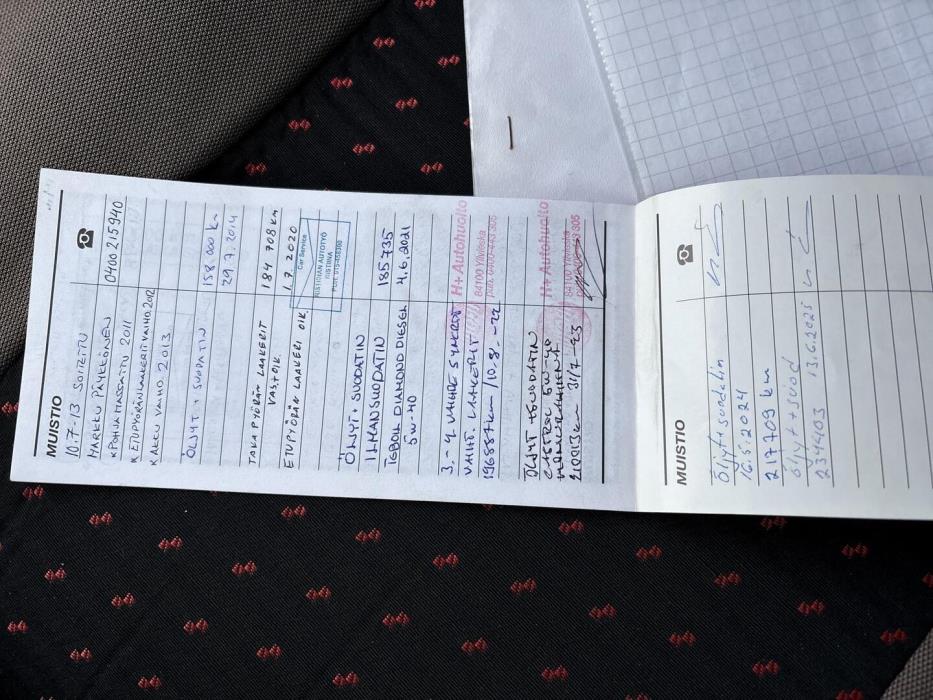 MUISTIO
10.7-13 SOITETTU
MARKKU PÄYKKÖNEN 0400 215940
* POHJA MASSATTU 2011
* ETUPYÖRÄN LAAKERIT VAIHD. 2012
* AKKU VAIHD. 2013
ÖLJYT + SUODATIN 158.000 km
29.7.2014
TAKAPYÖRÄN LAAKERIT 184 708 KM
VAS+OIK.
ETUPYÖRÄN LAAKERI OIK. 1.7.2020
Car Service
RISTIINAN AUTOTYÖ
RISTIINA
ÖLJYT + SUODATIN
ILMANSUODATIN 185735
TEBOIL DIAMOND DIESEL 4.6.2021
5W-40
3,-4 VAIHDE SYNKROT
VAIHT. LAAKERIT
196887km /10.8.-22
H+ Autohuolto
84100 Ylivieska
puh. 0400-443 305
ÖLJYT + SUODATIN
CASTROL 5W-40
31/7-23
H+ Autohuolto
84100 Ylivieska
MUISTIO
Öljyt+suodatin
16.5.2024
217709 km
öljyt + suod
234403 13.6.2025